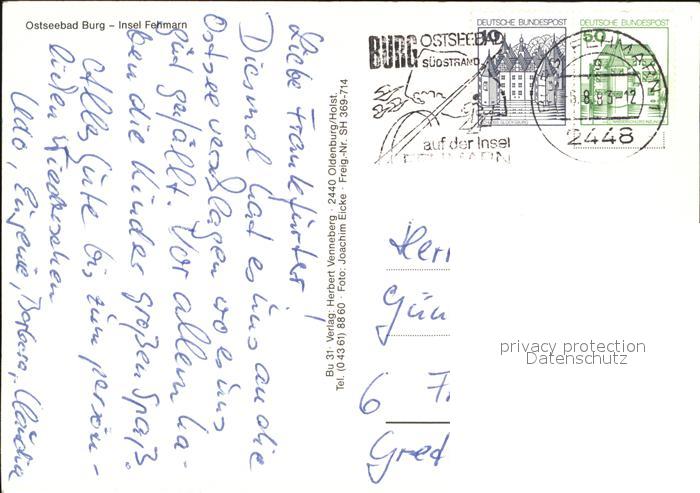 Ostseebad Burg – Insel Fehmarn
Liebe Frankfurter!
Diesmal hat es uns an die
Ostsee verschlagen wo es uns
gut gefällt. Vor allem ha-
ben die Kinder großen Spaß.
Alles Gute bis zum persön-
lichen Wiedersehen
Udo, Eugenie, Barbara, Claudia
Bu 31 · Verlag: Herbert Venneberg · 2440 Oldenburg/Holst.
Tel. (0 43 61) 88 60 · Foto: Joachim Eicke · Freig.-Nr. SH 369-714
BURG OSTSEEBAD
SÜDSTRAND
auf der Insel
FEHMARN
DEUTSCHE BUNDESPOST
10
DEUTSCHE BUNDESPOST
50
8.83-12
2448
Herr
Gün
6 Fr
Gred
privacy protection
Datenschutz